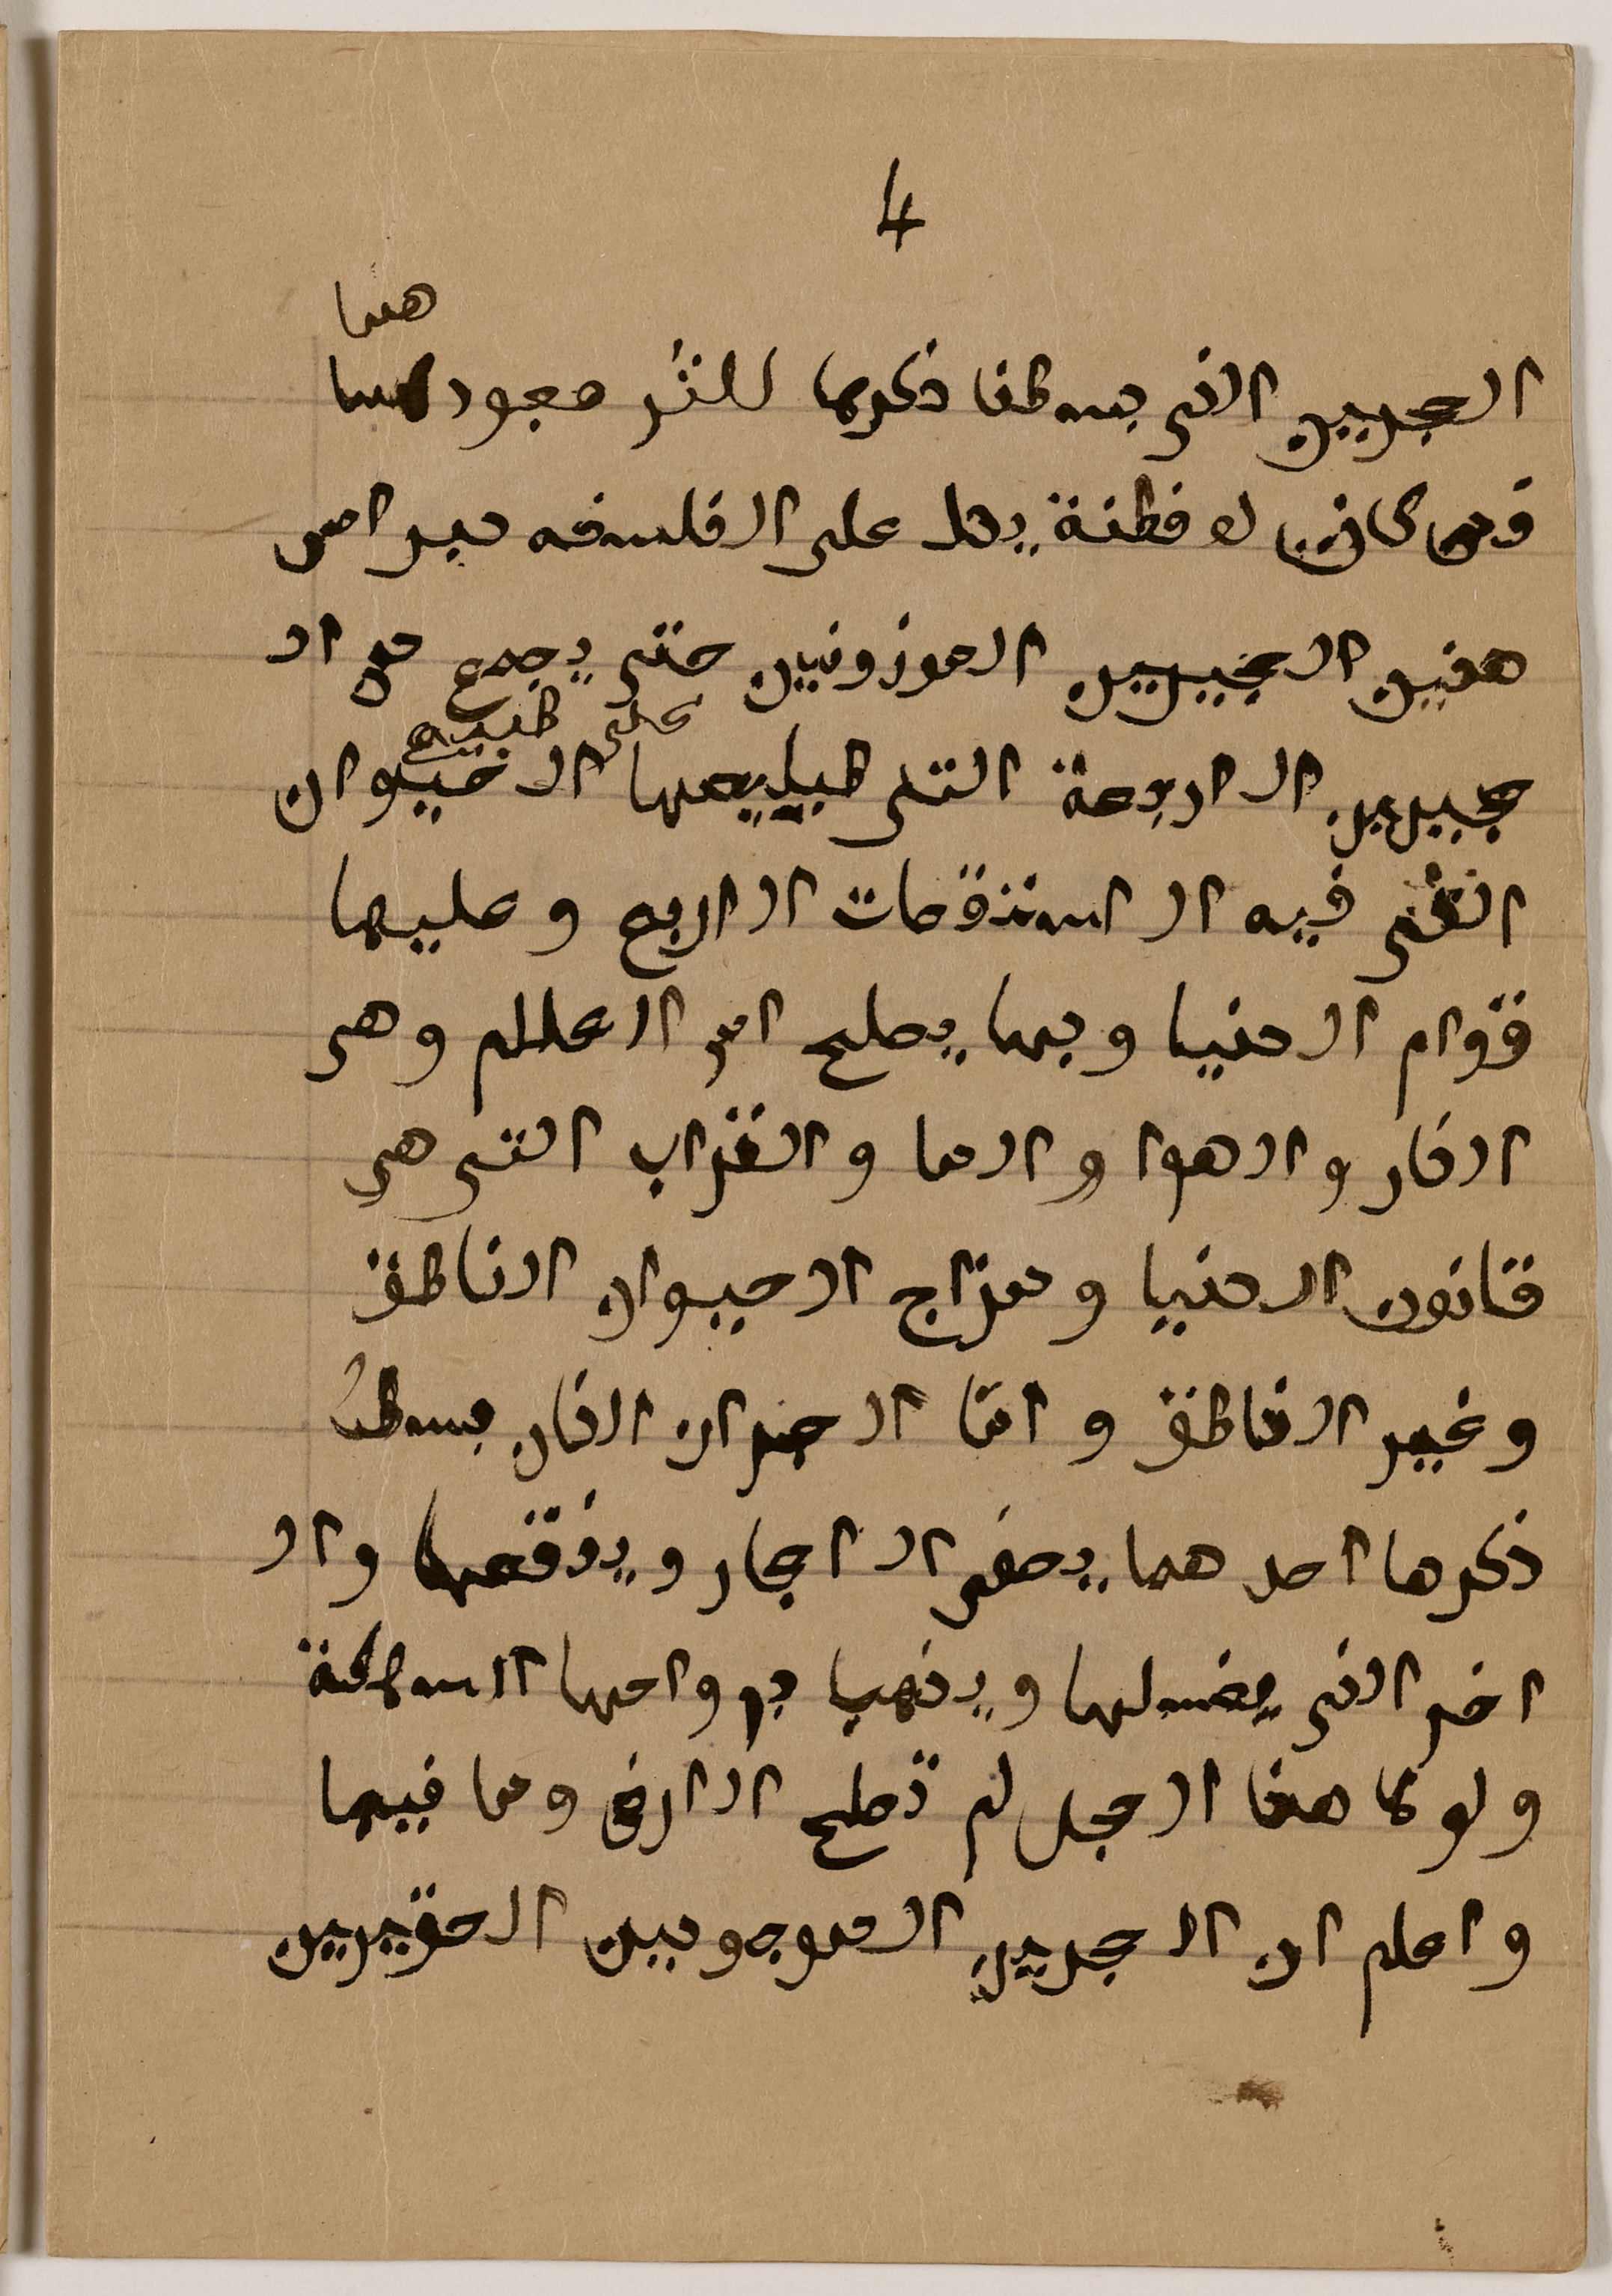 4
هما
الحجرين الذى بسطنا ذكرهما للثر معجودهما
فمن كان له فطنة يدل على الفلسفه مير امن
هذين الحجرين الموزونين حتى يجمع من ال
على طبيع
حجرين الاربعة التى طبايعها الاخيوان
الذى فيه الاستقصات الاربع وعليها
قوام الدنيا وبها يصلح امر العالم وهى
النار والهوا والما والتراب التى هى
قانون الدنيا ومزاج الحيوان الناطق
وغير الناطق واما الحجران الذان بسطت
ذكرها احدهما يصفى الاحجار وينقعها وال
اخر الذى يغسلها ويذهب باوساخها الساكنة
ولولا هذا الحجل لم تصلح الارض وما فيها
واعلم ان الحجرين الموجودين الحقيرين